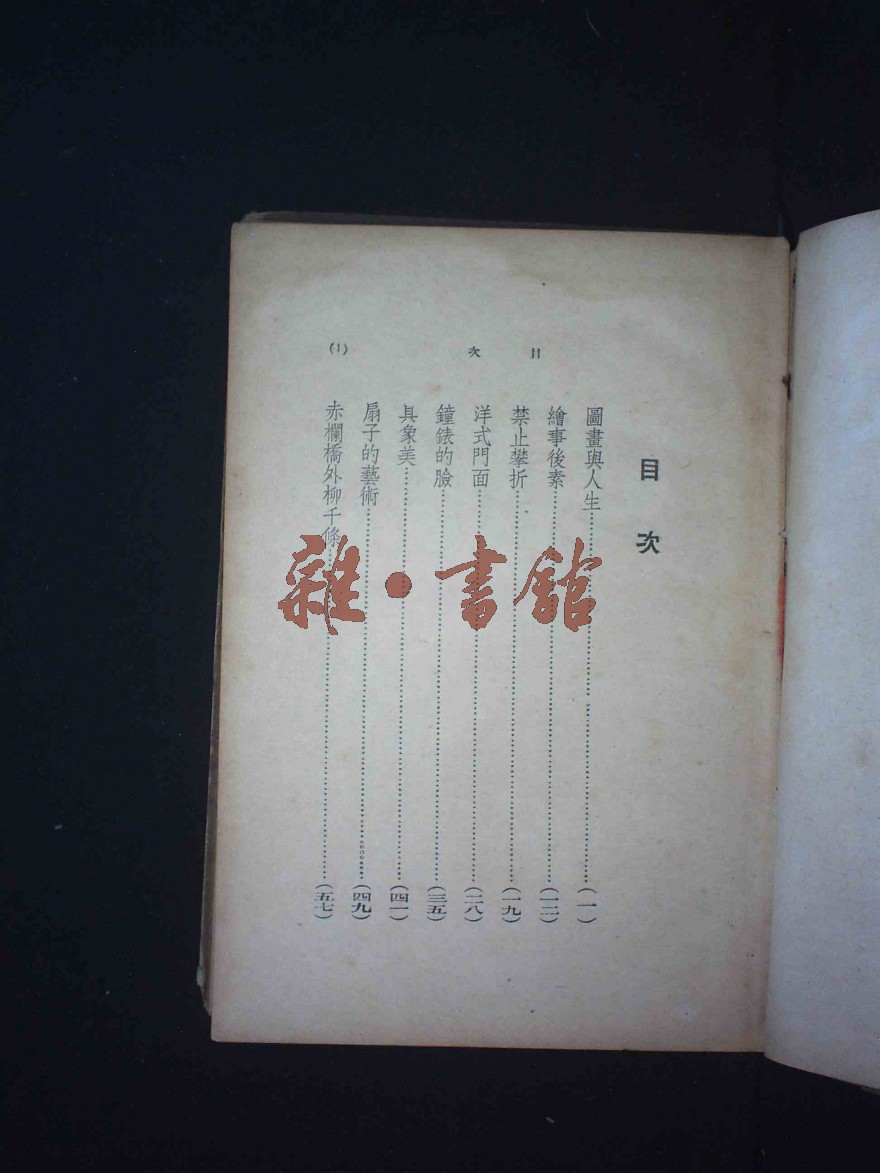 目次
(1)
目次
圖畫與人生……(一)
繪事後素……(一二)
禁止攀折……(一九)
洋式門面……(二八)
鐘錶的臉……(三五)
具象美……(四一)
扇子的藝術……(四九)
赤欄橋外柳千條……(五七)
雜・書館